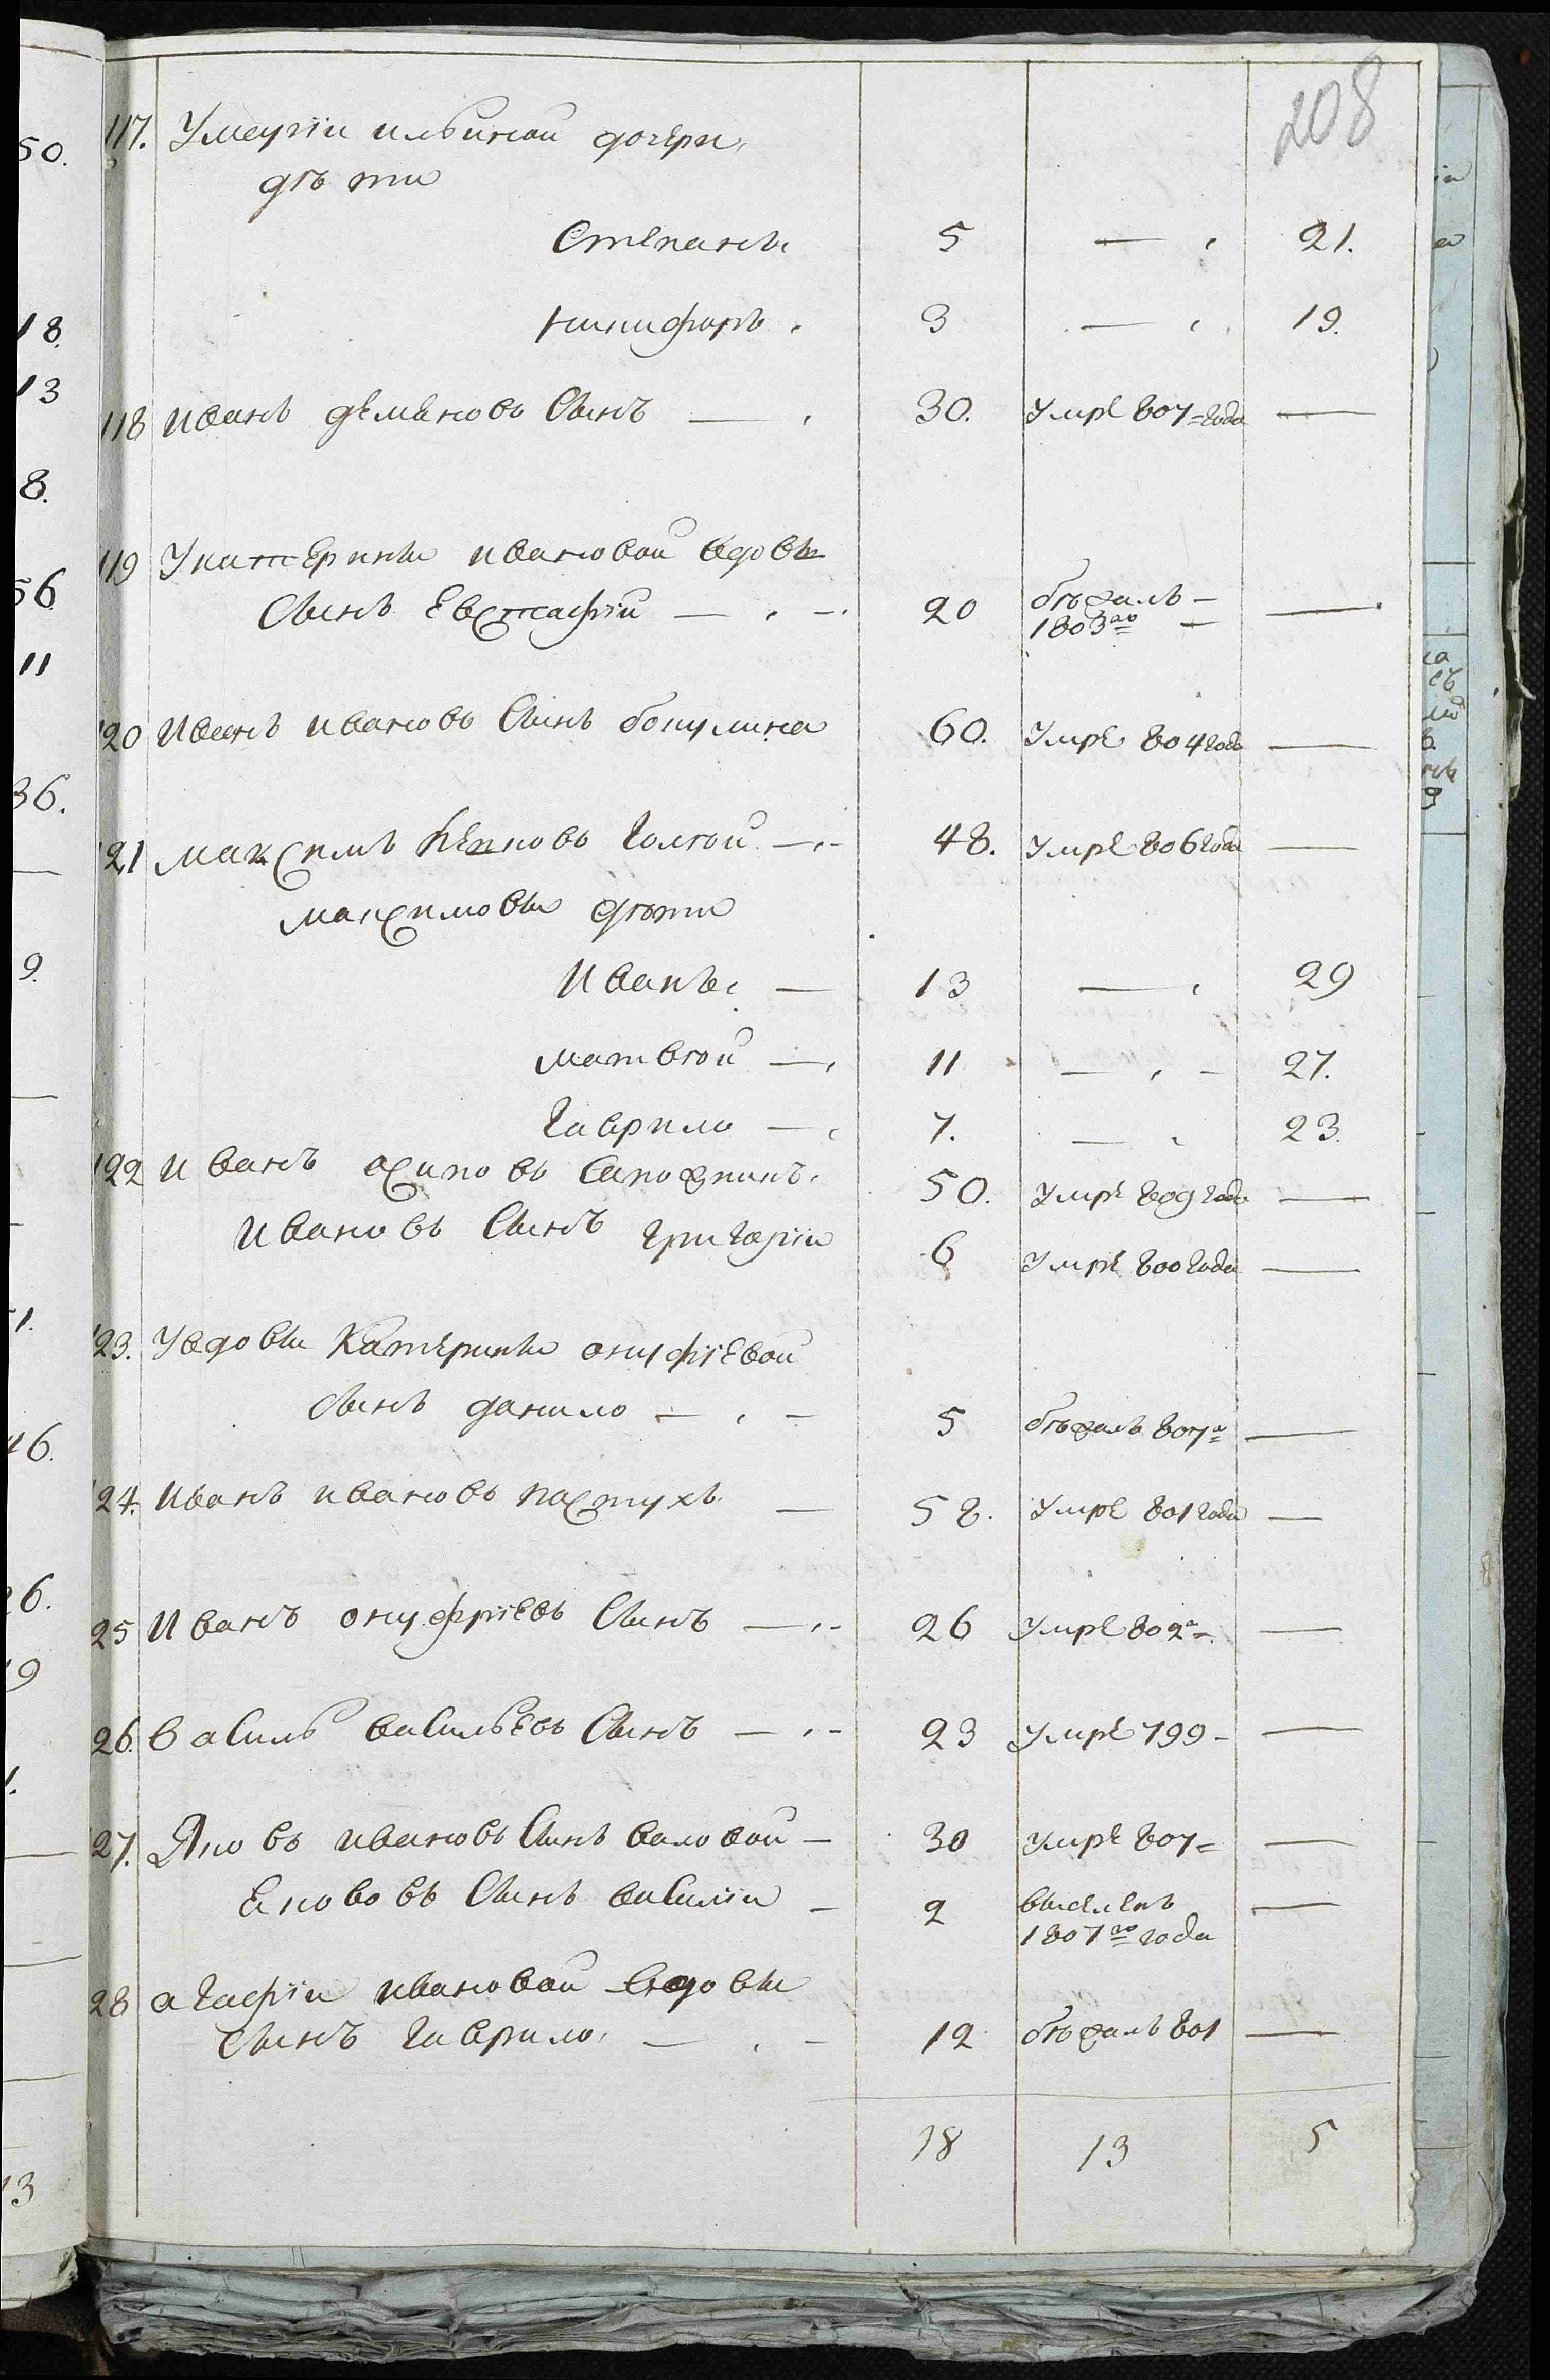 208
117. Умаріи ильиной дочери,
дѣти
Степанъ 5 — 21.
никифоръ. 3 — 19.
118 Иванъ демьяновъ Сынъ — 30. Умре 807 = года —
119 Укатерины ивановой вдовы
Сынъ Евстафій — 20 бѣжалъ — 1803го — —
120 Иванъ ивановъ Сынъ 60. Умре 804 года —
121 максимъ Голгой — 48. Умре 806 года —
максимовы дѣти
Иванъ — 13 — 29
матвѣй — 11 — 27.
Гаврило — 7. — 23.
122 Иванъ осиповъ Сапожникъ. 50. Умре 809 года —
Ивановъ Сынъ григорій 6 Умре 800 года —
123. Увдовы Катерины онуфріевой
Сынъ данило — 5 бѣжалъ 807 —
124. Иванъ ивановъ пастухъ — 58. Умре 801 года —
25 Иванъ онуфріевъ Сынъ — 26 Умре 802 —
26. василь васильевъ Сынъ — 23 Умре 799 — —
27. Яковъ ивановъ Сынъ валовой — 30 Умре 807 = —
Яковъ Сынъ василій — 2 1807го года —
28 агафіи ивановой вдовы
Сынъ Гаврило. — 12 бѣжалъ 801 —
18 13 5